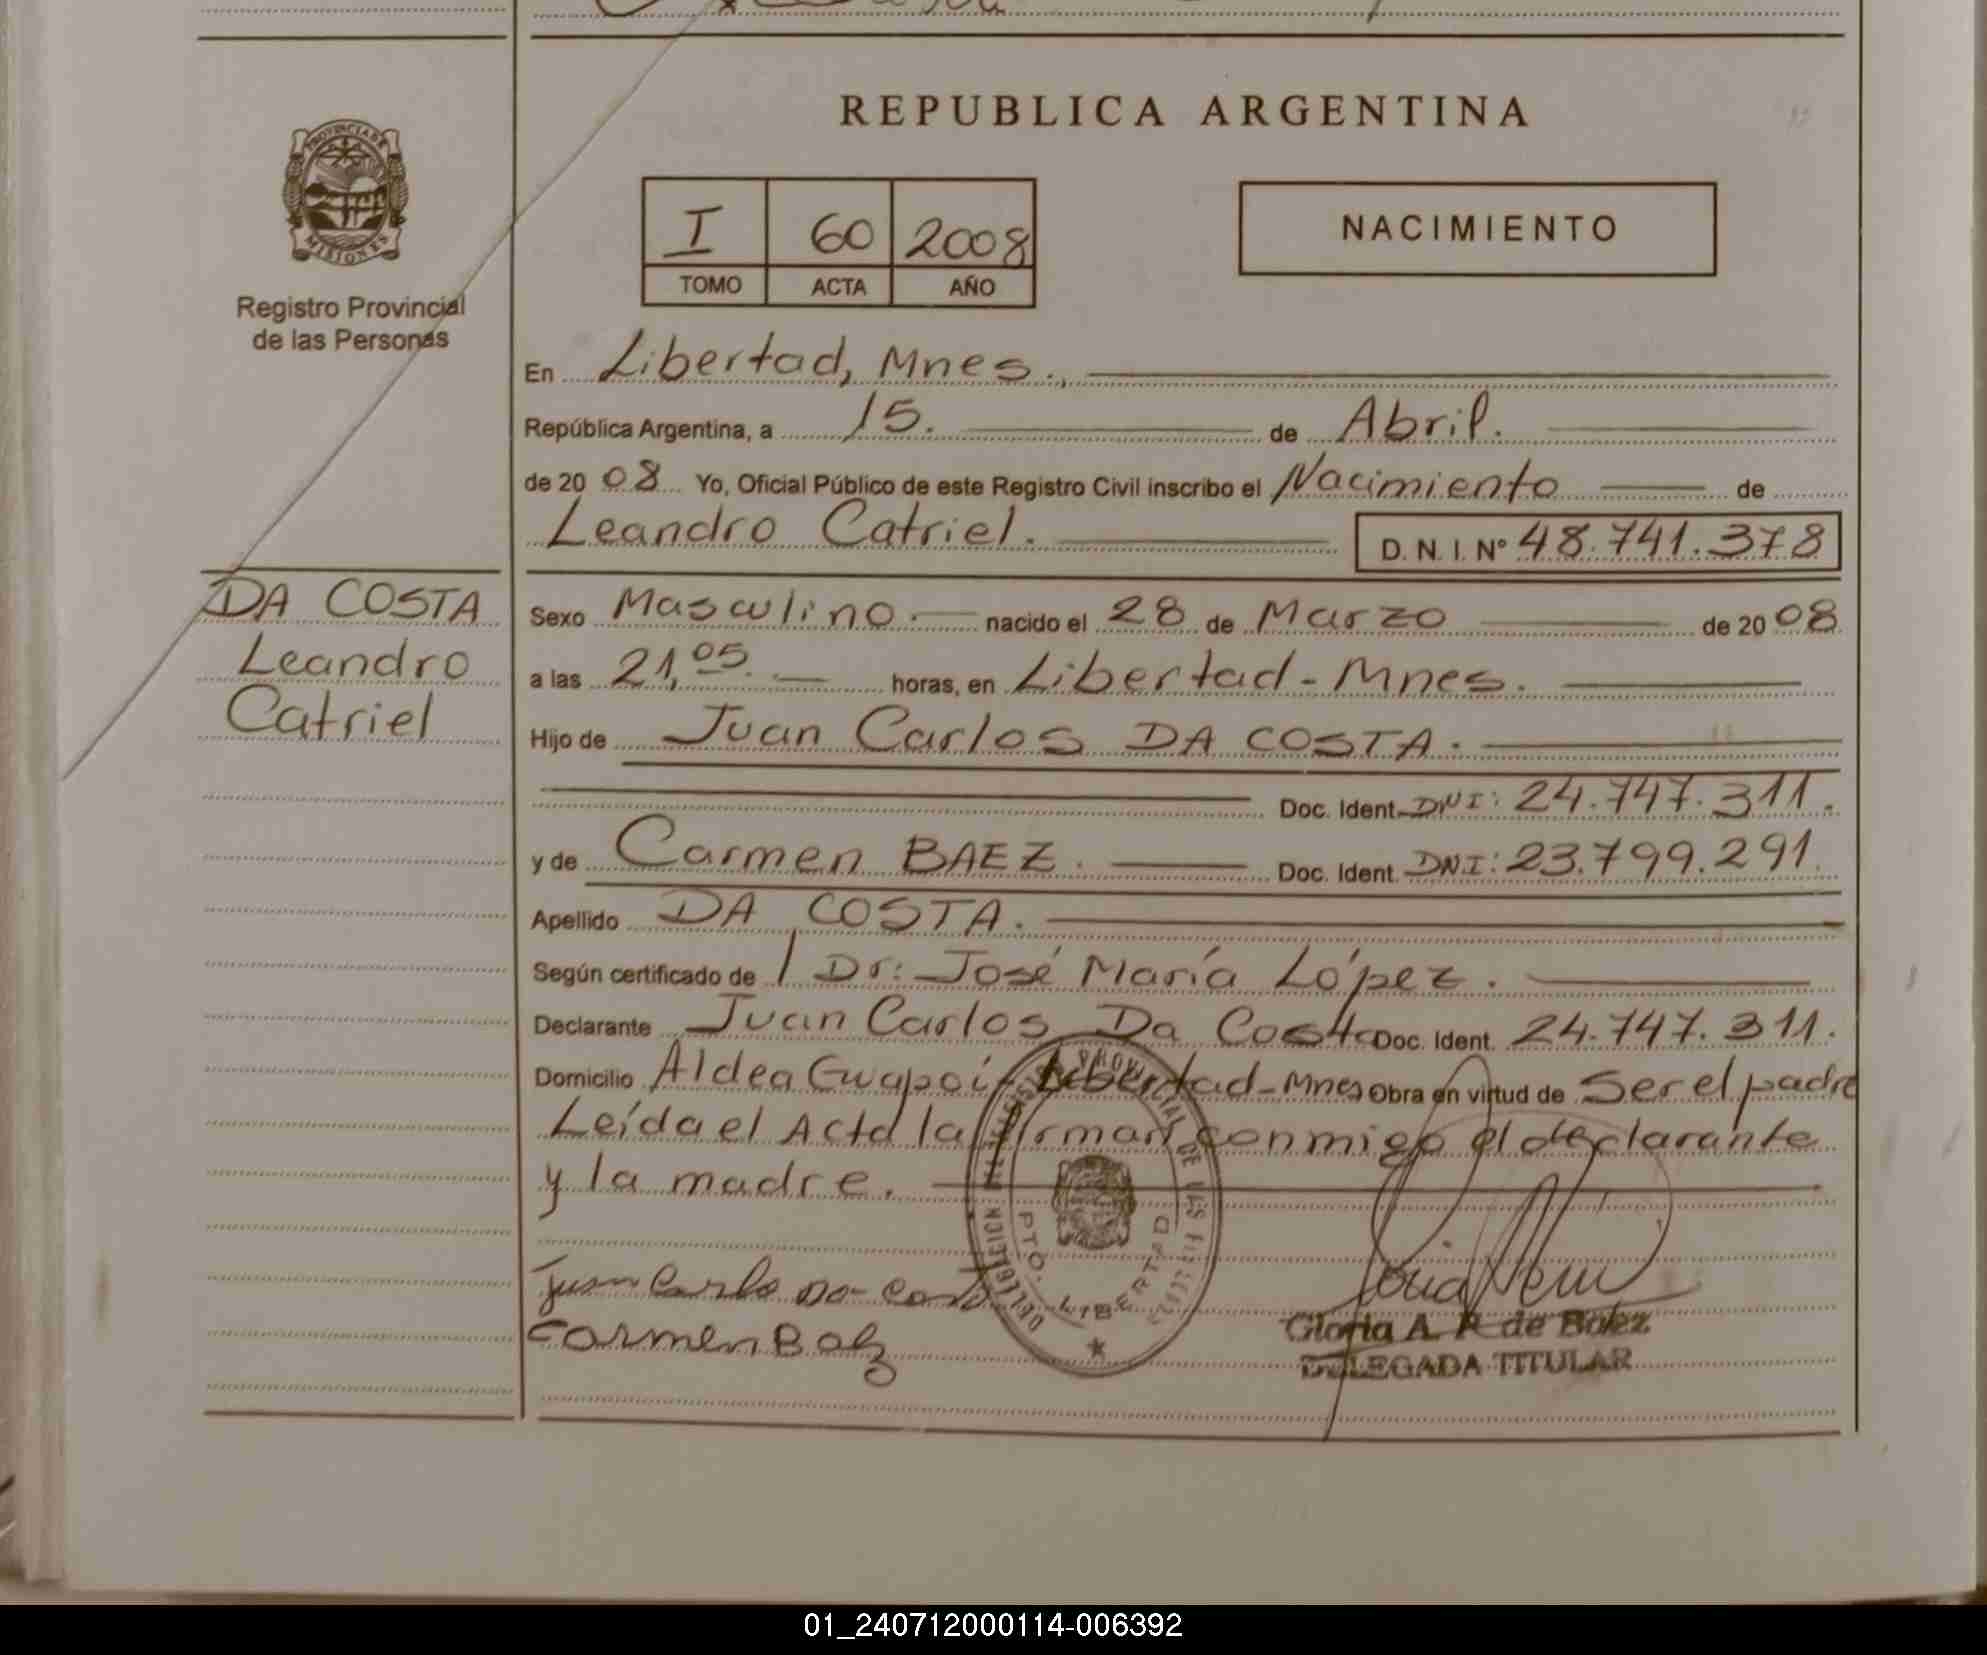 REPUBLICA ARGENTINA
PROVINCIA DE MISIONES
Registro Provincial
de las Personas
I 60 2008
TOMO ACTA AÑO
NACIMIENTO
En Libertad, Mnes.,
República Argentina, a 15. de Abril.
de 20 08 Yo, Oficial Público de este Registro Civil inscribo el Nacimiento de
Leandro Catriel. D. N. I. Nº 48.741.378
DA COSTA
Leandro
Catriel
Sexo Masculino. nacido el 28 de Marzo de 20 08
a las 21,05. horas, en Libertad - Mnes.
Hijo de Juan Carlos DA COSTA.
Doc. Ident. DNI: 24.747.311.
y de Carmen BAEZ. Doc. Ident. DNI: 23.799.291.
Apellido DA COSTA.
Según certificado de Dr: José María López.
Declarante Juan Carlos Da Costa Doc. Ident. 24.747.311.
Domicilio Aldea Guapoi - Libertad - Mnes Obra en virtud de Ser el padre
Leída el Acta la firman conmigo el declarante
y la madre.
PROVINCIAL DE LAS
PTO. LIBERTAD
Juan Carlo Da Cost
Carmen Baez
Gloria A. P. de Baez
DELEGADA TITULAR
01_240712000114-006392